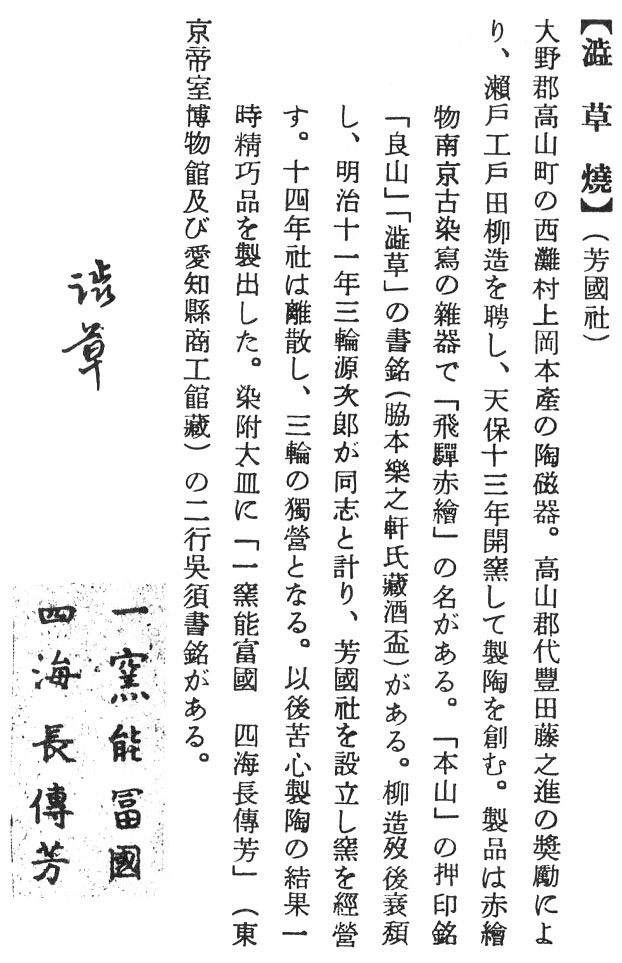 【澁草燒】(芳國社)
大野郡高山町の西灘村上岡本產の陶磁器。高山郡代豐田藤之進の奬勵によ
り、瀨戶工戶田柳造を聘し、天保十三年開窯して製陶を創む。製品は赤繪
物南京古染寫の雜器で「飛驒赤繪」の名がある。「本山」の押印銘
「良山」「澁草」の書銘(脇本樂之軒氏藏酒盃)がある。柳造歿後衰頽
し、明治十一年三輪源次郎が同志と計り、芳國社を設立し窯を經營
す。十四年社は離散し、三輪の獨營となる。以後苦心製陶の結果一
時精巧品を製出した。染附大皿に「一窯能富國　四海長傳芳」(東
京帝室博物館及び愛知縣商工館藏)の二行吳須書銘がある。
澁草
一窯能冨國
四海長傳芳